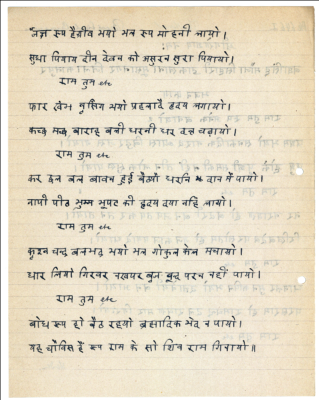 जज्ञ रूप हैग्रीव भयो भव रूप मोहनी पायो।
सुधा पिवाय दीन देवन को असुरन सुरा पिवायो।
राम तुम etc
फार खंभ नृसिंग भयो प्रहलादै हृदय लगायो।
कच्छ मच्छ बाराह बनी धरनी धर दन्त चढ़ायो।
राम तुम etc
कर छल बल बावन हुई बैठ्यो धरनि दान में पायो।
नापी पीठ भुम्म भूपट की हृदय दया नहि आयो।
राम तुम etc
कृश्न चन्द्र बलभद्र भयो भव गोकुल केल मचायो।
धार लियो गिरवर नखपर बुन्द परन नहीं पायो।
राम तुम etc
बोध रूप हो बैठ रहयो ब्रह्मादिक भेद न पायो।
यह चौविस हैं रूप राम के सो शिव राम गिनायो॥